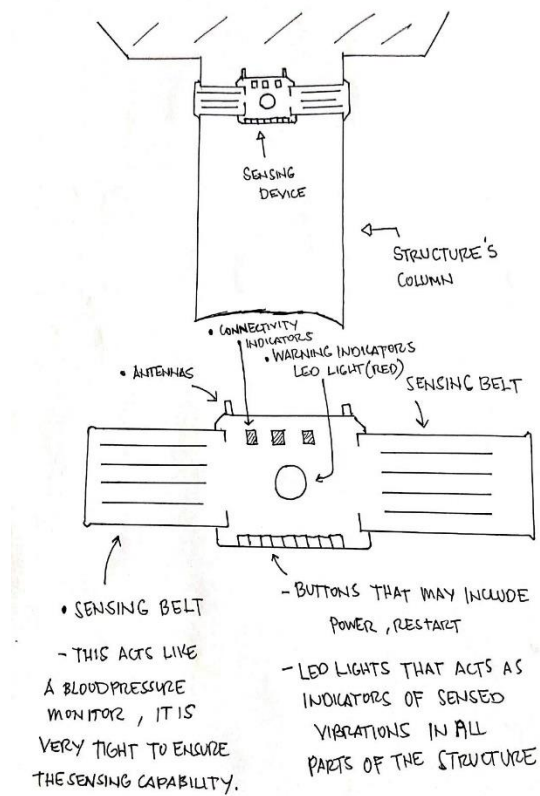 SENSING
DEVICE
STRUCTURE'S
COLUMN
• CONNECTIVITY
INDICATORS
• WARNING INDICATORS
LED LIGHT (RED)
• ANTENNAS
SENSING BELT
• SENSING BELT
- THIS ACTS LIKE
A BLOODPRESSURE
MONITOR, IT IS
VERY TIGHT TO ENSURE
THE SENSING CAPABILITY.
- BUTTONS THAT MAY INCLUDE
POWER, RESTART
- LED LIGHTS THAT ACTS AS
INDICATORS OF SENSED
VIBRATIONS IN ALL
PARTS OF THE STRUCTURE